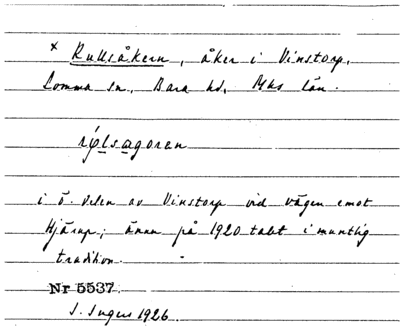 x Rullsåkern, åker i Vinstorp,
Lomma sn, Bara hd, Mhs län.
i ö. delen av Vinstorp vid vägen emot
Hjärup; ännu på 1920 talet i muntlig
tradition.
Nr 5537.
1926